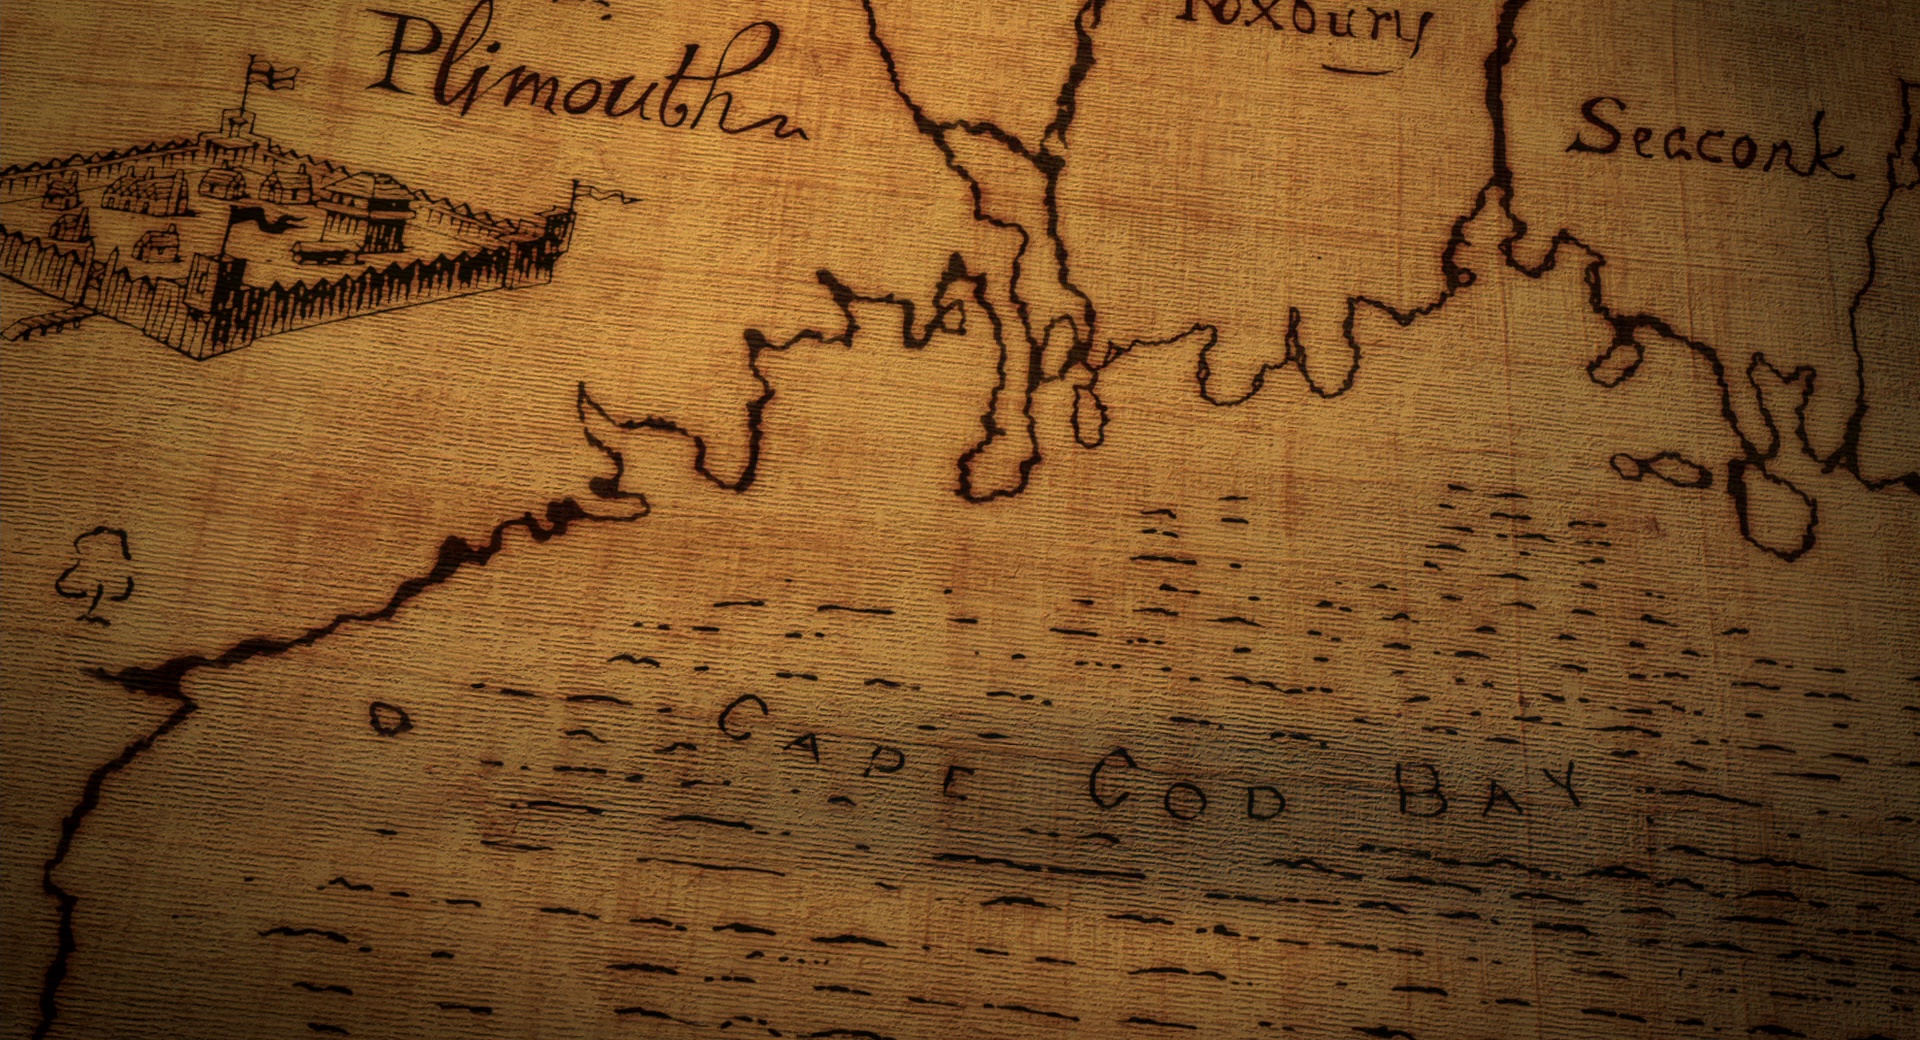 Roxbury
Plimouth
Seaconk
CAPE COD BAY